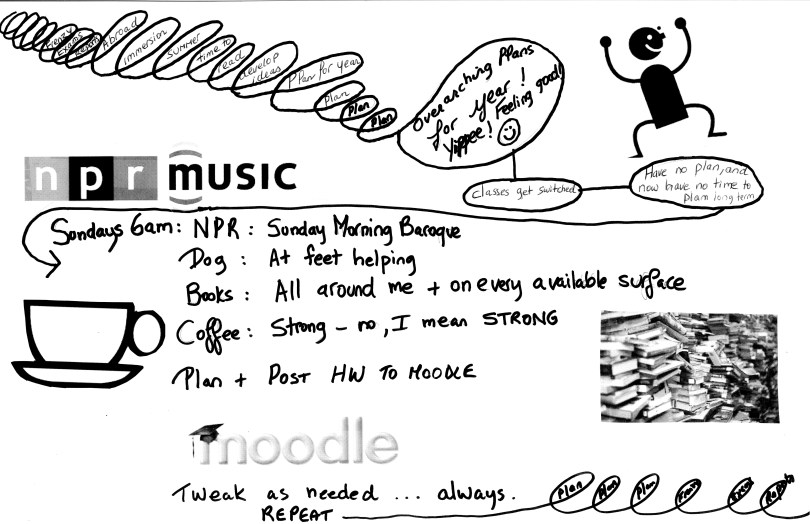 Frenzy
Exams
Reports
Abroad
immersion
summer
time to
read
develop
ideas
Plan for year
Plan
Plan
Plan
Overarching Plans
for year!
Yippee! Feeling good!
classes get switched
Have no plan, and
now have no time to
plan long term
npr music
Sundays 6am: NPR: Sunday Morning Baroque
Dog: At feet helping
Books: All around me + on every available surface
Coffee: Strong - no, I mean STRONG
Plan + POST HW TO MOODLE
moodle
Tweak as needed ... always.
REPEAT
Plan
Plan
Plan